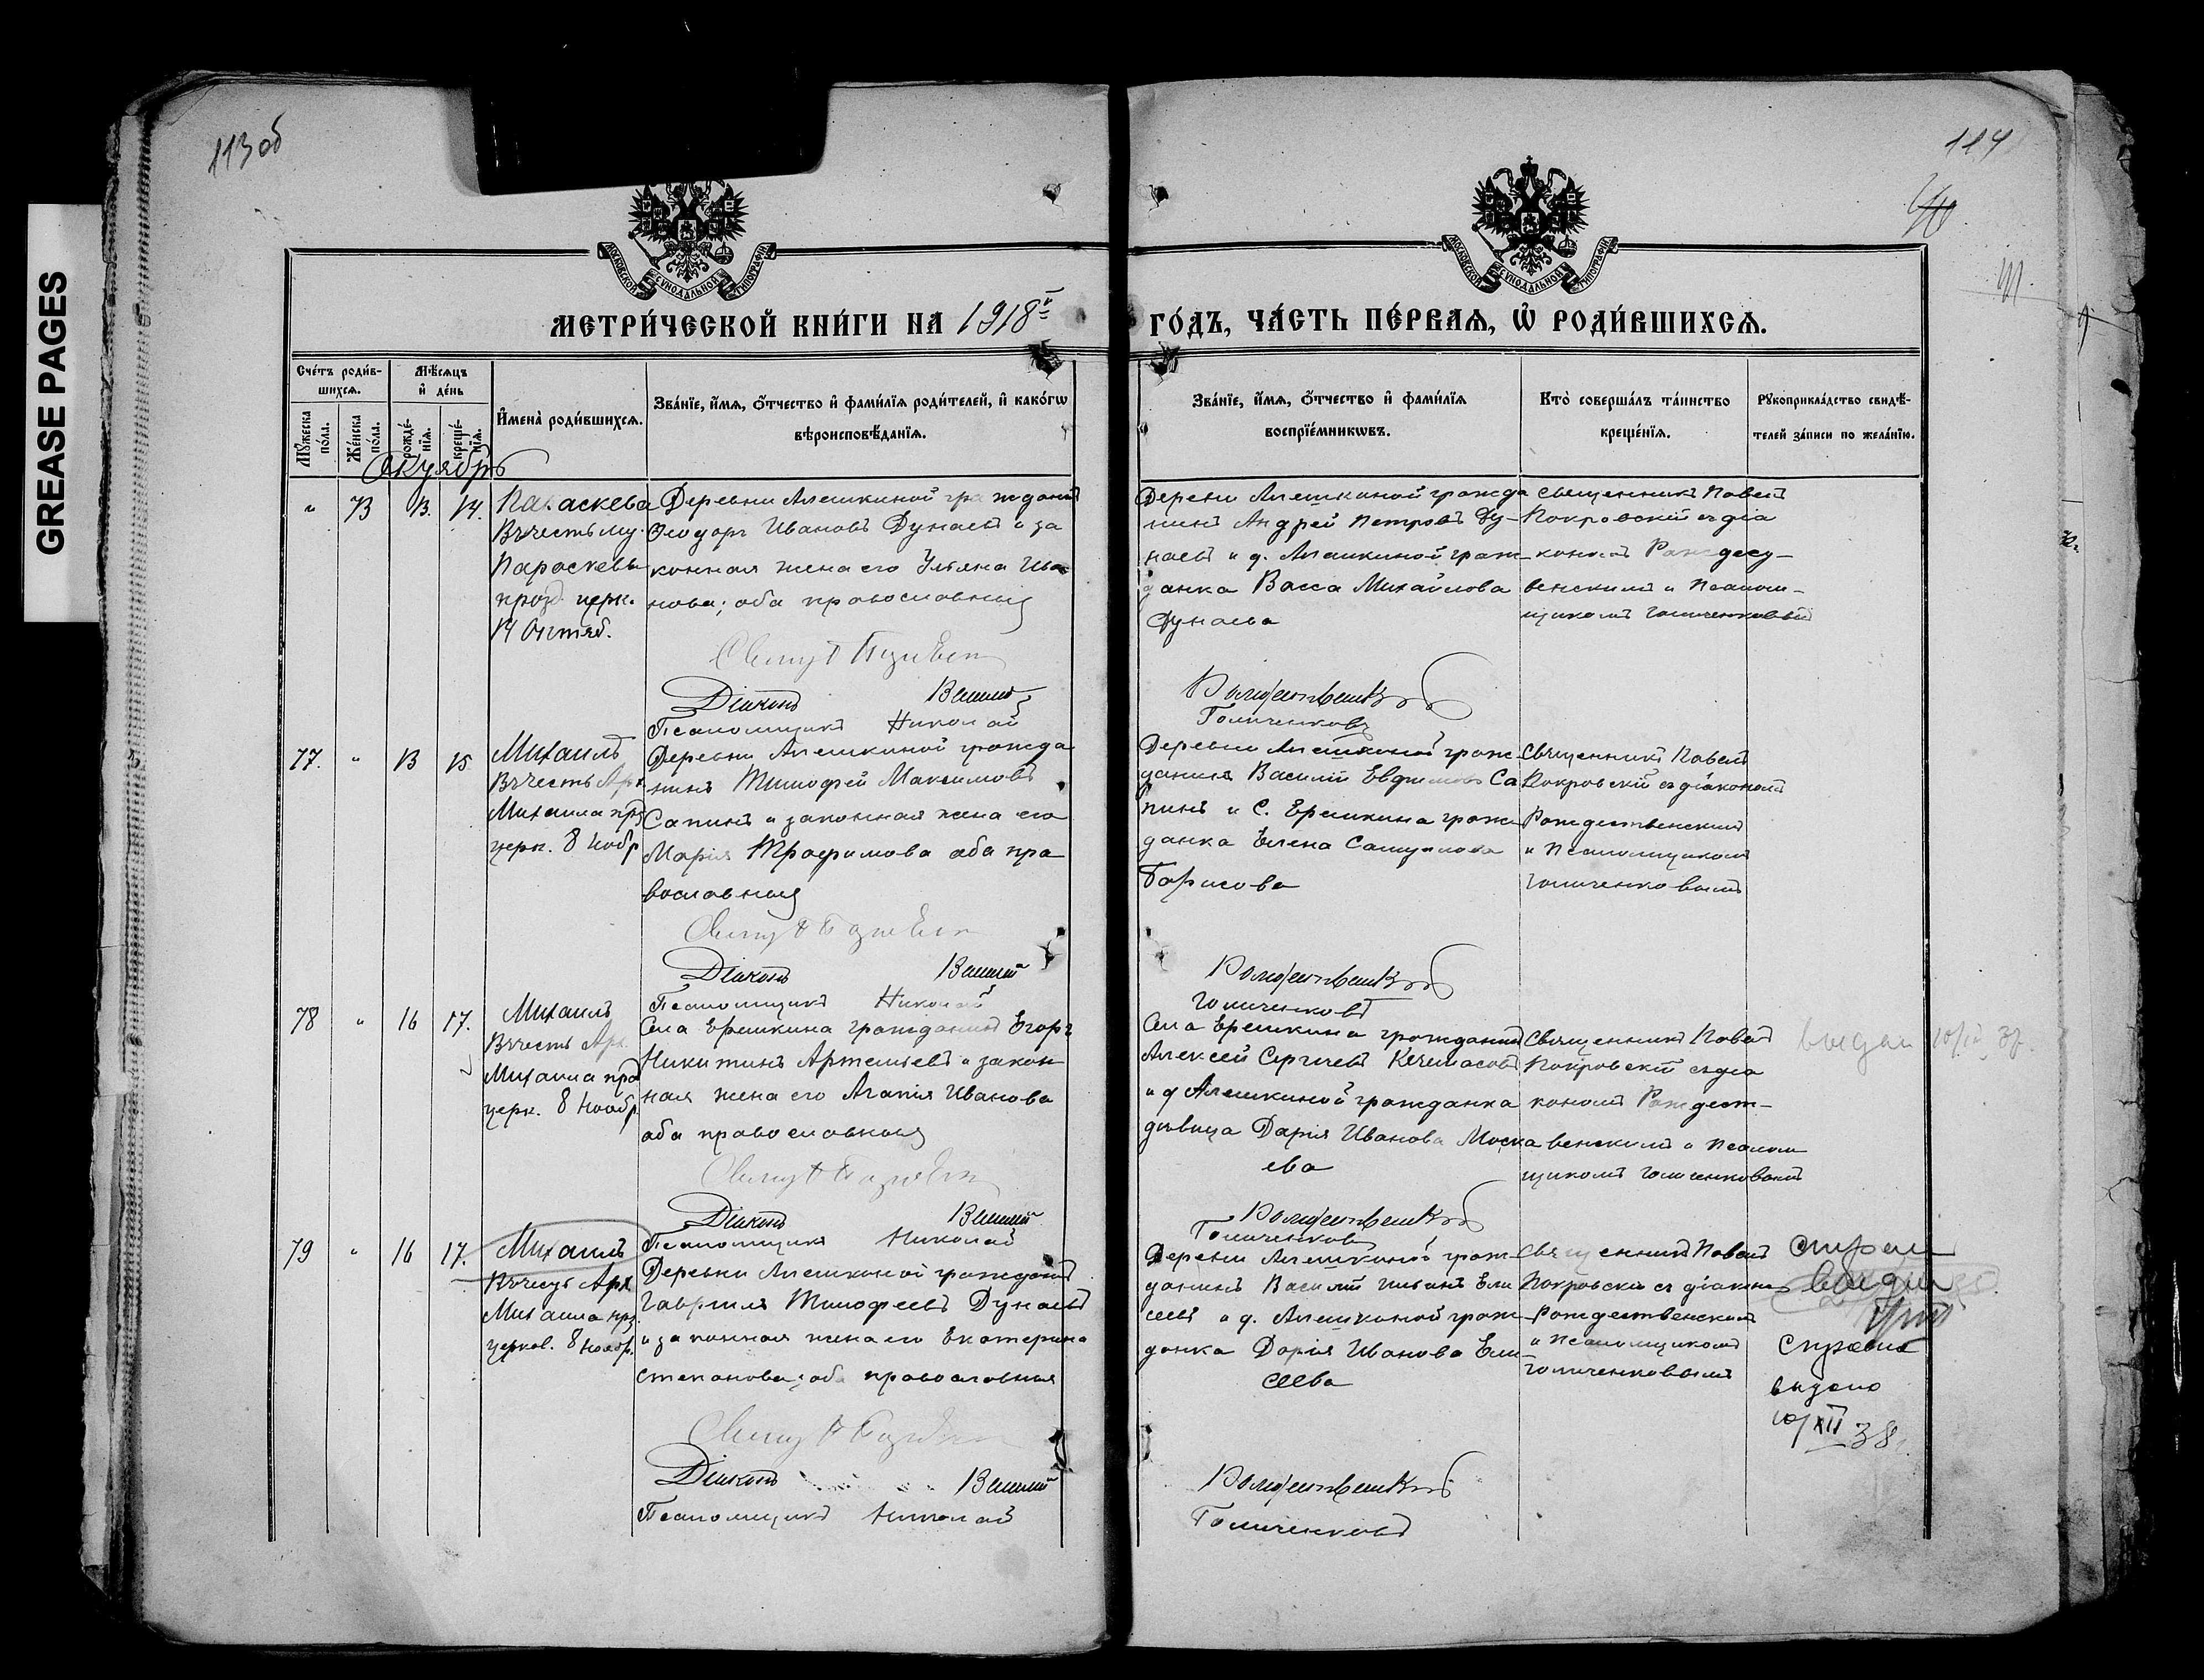 GREASE PAGES
113 об
114
МОСКОВСКОЙ СѴНОДАЛЬНОЙ ТИПОГРАФІИ
МОСКОВСКОЙ СѴНОДАЛЬНОЙ ТИПОГРАФІИ
МЕТРИ́ЧЕСКОЙ КНИ́ГИ НА 1918й
ГО́ДЪ, ЧА́СТЬ ПЕ́РВАЯ, Ѡ҆ РОДИ́ВШИХСЯ.
Сче́тъ роди́в-
шихся.
Мѣ́сяцъ
и҆ де́нь
Мꙋ́жеска по́ла.
Же́нска по́ла.
рожде́-нїя.
креще́-нїя.
И҆мена̀ роди́вшихся.
Зва́нїе, и҆́мя, ѻ҆́тчество и҆ фами́лїя роди́телей, и҆ како́гѡ
вѣроисповѣ́данїя.
Зва́нїе, и҆́мя, ѻ҆́тчество и҆ фами́лїя
воспрїе́мникѡвъ.
Кто̀ соверша́лъ та́инство
креще́нїя.
Рꙋкоприкла́дство свидѣ́-
телей за́писи по жела́нїю.
Октябрь
" 13 13. 14.
Параскева
Въ честь му.
Параскевы
празд. церк.
14 Октяб.
Деревни Алешкиной гражданин
Ѳеодоръ Ивановъ Дунаевъ и за
конная жена его Ульяна Ива
нова; оба православныя
Діаконъ Василій
Псаломщикъ Николай
Деревни Алешкиной гражда
нинъ Андрей Петровъ Ду-
наевъ и д. Алешкиной граж-
данка Васса Михайлова
Дунаева
Рождественскій
Голиченковъ
Священникъ Павелъ
Покровскій съ діа
кономъ Рождест-
венскимъ и Псалом-
щикомъ Голиченковымъ
77. " 13 15
Михаилъ
Въ честь Арх
Михаила прз
церк. 8 Ноябр
Деревни Алешкиной гражда
нинъ Тимофей Максимовъ
Сапинъ и законная жена его
Марія Трофимова оба пра
вославныя
Діаконъ Василій
Псаломщикъ Николай
Деревни Алешкиной граж-
данинъ Василій Евфимовъ Са
пинъ и С. Ерешкина граж
данка Елена Самуилова
Борисова
Рождественскій
Голиченковъ
Священникъ Павелъ
Покровскій съ діакономъ
Рождественскимъ
и Псаломщикомъ
Голиченковымъ
78 " 16 17.
Михаилъ
Въ честь Арх.
Михаила прз
церк. 8 Ноябр.
Села Ерешкина гражданинъ Егоръ
Никитинъ Артемьевъ и закон
ная жена его Агапія Иванова
оба православныя
Діаконъ Василій
Псаломщикъ Николай
Села Ерешкина гражданинъ
Алексей Сергеевъ
и д Алешкиной гражданка
девица Дарія Иванова
ева
Рождественскій
Голиченковъ
Священникъ Павелъ
Покровскій съ діа
кономъ Рождест-
венскимъ и Псалом
щикомъ Голиченковымъ
79 " 16 17.
Михаилъ
Въ честь Арх
Михаила прз.
церков. 8 Ноябр.
Деревни Алешкиной гражданинъ
Гавриилъ Тимофеевъ Дунаевъ
и законная жена его Екатерина
Степанова; оба православныя
Діаконъ Василій
Псаломщикъ Николай
Деревни Алешкиной граж-
данинъ Василій Ивановъ Ели
сеевъ и д. Алешкиной граж-
данка Дарія Иванова Ели-
сеева
Рождественскій
Голиченковъ
Священникъ Павелъ
Покровскій съ діакономъ
Рождественскимъ
и Псаломщикомъ
Голиченковымъ
Справка
выдано
10/XII 38